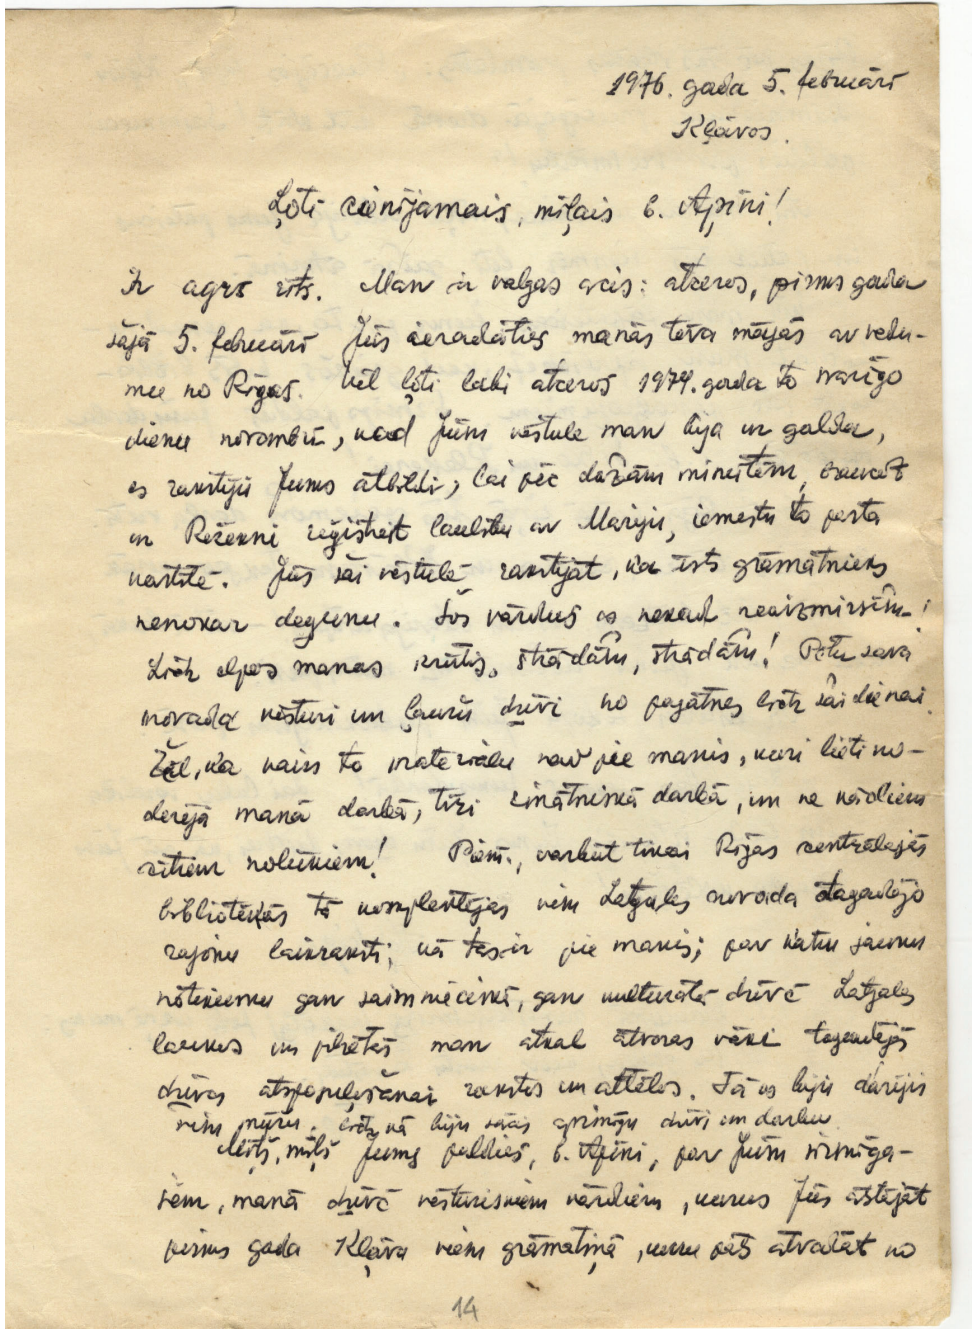 1976. gada 5. februārī
Kļavos.
Ļoti cienījamais, mīļais b. Apīni!
Ir agrs rīts. Man ir valgas acis: atceros, pirms gada
šajā 5. februārī Jūs ieradāties manās tēva mājās ar vedu-
mu no Rīgas. Vēl ļoti labi atceros 1974. gada to svarīgo
dienu novembrī, kad Jūsu vēstule man bija uz galda,
es rakstīju Jums atbildi, lai pēc dažām minūtēm, braucot
uz Rēzekni reģistrēt laulību ar Mariju, iemestu to pasta
kastītē. Jūs šai vēstulē rakstījāt, ka īsts grāmatnieks
nenokar degunu. Šos vārdus es nekad neaizmirsīšu!
Līdz elpos manas krūtis, strādāšu, strādāšu! Pētu sava
novada vēsturi un ļaužu dzīvi no pagātnes līdz šai dienai.
Žēl, ka vairs to materiālu nav pie manis, kuri lieti no-
derēja manā darbā, tīri zinātniskā darbā, un ne kādiem
citiem nolūkiem! Piem., varbūt tikai Rīgas centrālajās
bibliotēkās tā komplektējas visu Latgales novada tagadējo
rajonu laikraksti, kā tas ir pie manis; par katru jaunu
notikumu gan saimnieciskā, gan kulturālā dzīvē Latgales
laukos un pilsētās man atkal atveras vāki tagadējās
dzīves atspoguļošanai rakstos un attēlos. Tā es biju darījis
visu mūžu, līdz kā biju sācis apzinīgu dzīvi un darbu.
Mīļš, mīļš Jums paldies, b. Apīni, par Jūsu sirsnīga-
jiem, manā dzīvē vēsturiskiem vārdiem, kurus Jūs atstājāt
pirms gada Kļavu viesu grāmatiņā, kuru pats atvedāt no
14